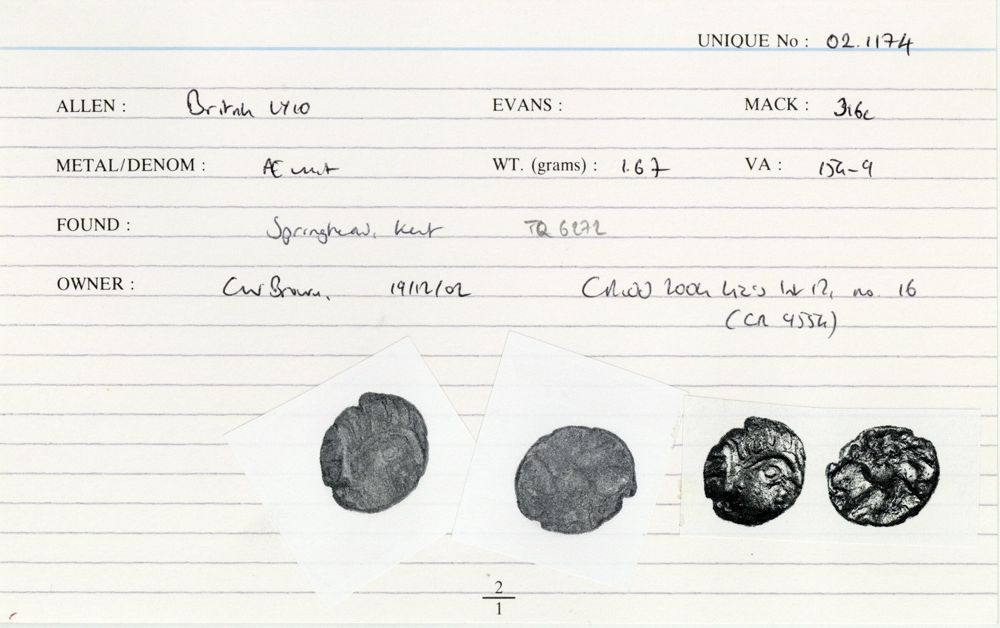 UNIQUE No : 02.1174
ALLEN : British LX10 EVANS : MACK : 316c
METAL/DENOM : Æ unit WT. (grams) : 1.67 VA : 154-9
FOUND : Springhead, Kent TQ 6272
OWNER : CW Brown, 19/12/02 no. 16
(CR 4554)
2
1